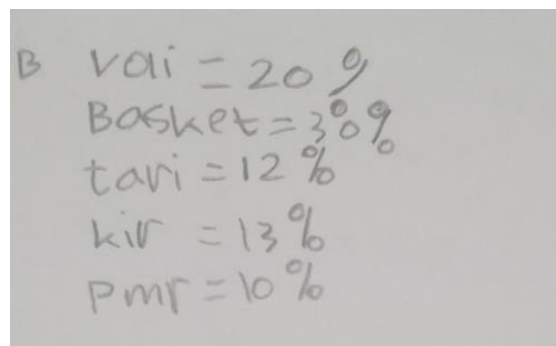 B voli = 20%
Basket = 30%
tari = 12%
kir = 13%
pmr = 10%